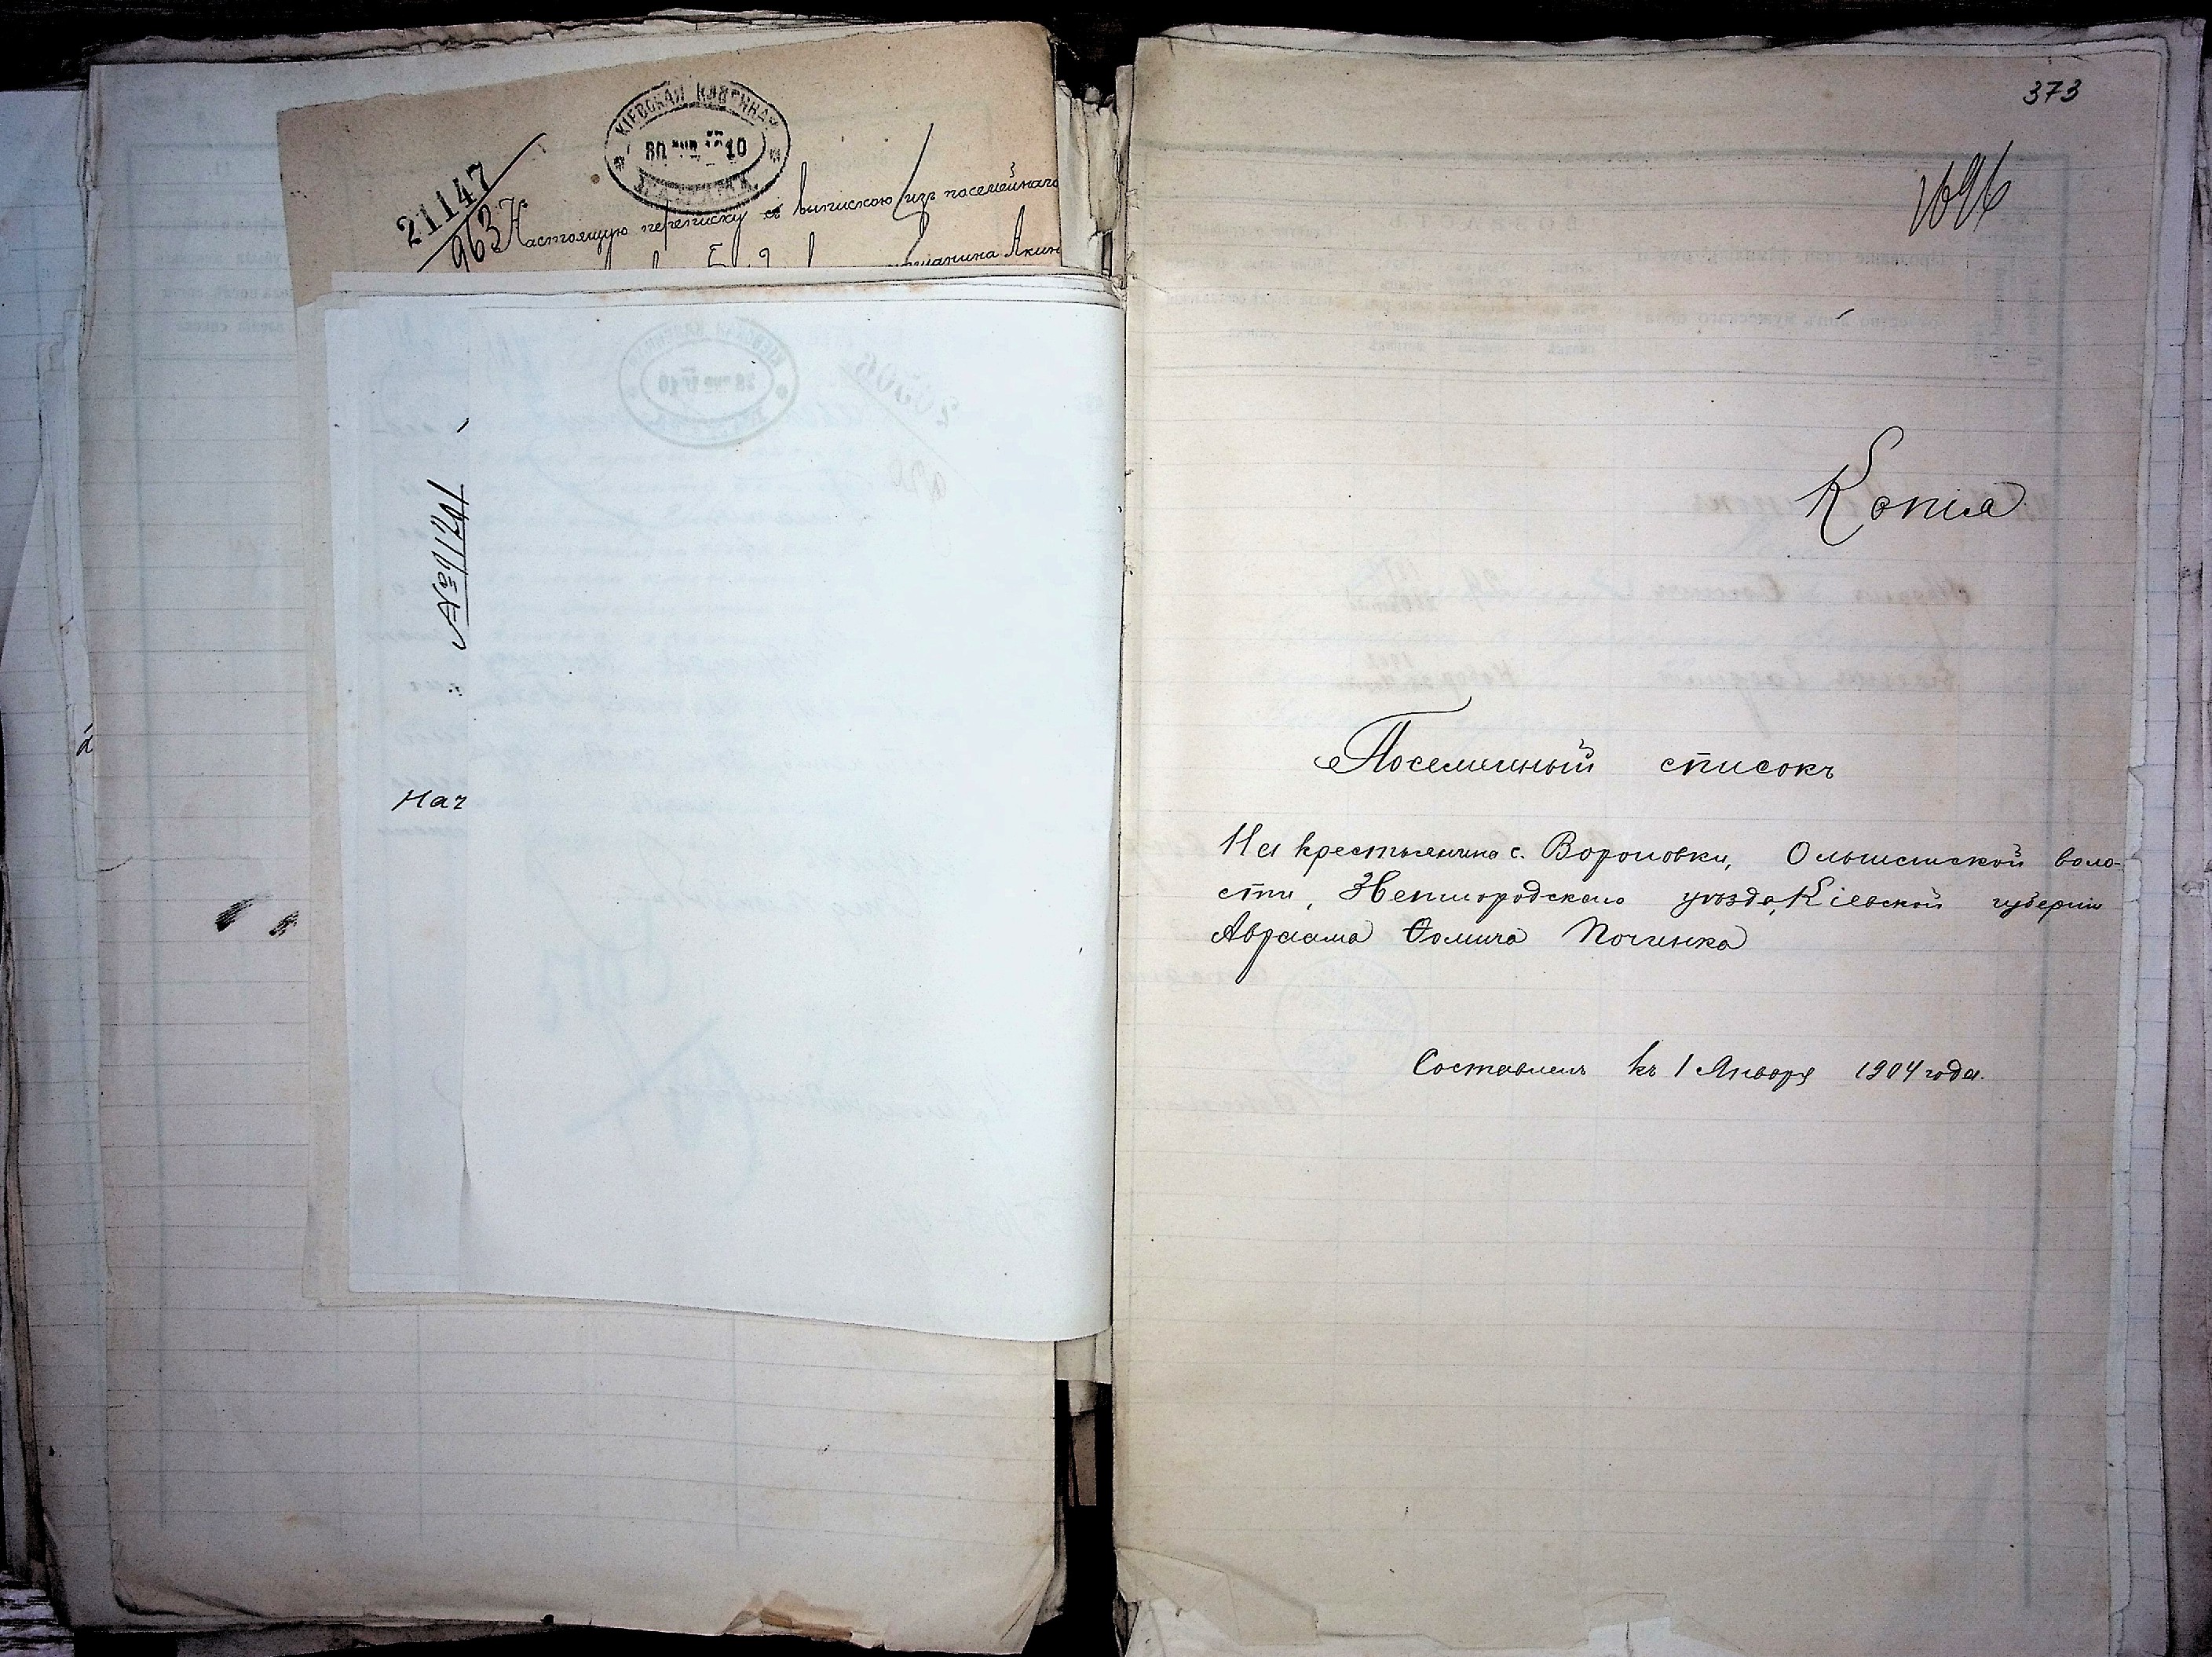 КІЕВСКАЯ КАЗЕННАЯ
ПАЛАТА
21147
963
Настоящую переписку съ выпискою изъ посемейнаго
Акин
Нач
373
1696
Копія
Посемейный списокъ
На крестьянина с. Вороновки, Ольшанской воло-
сти, Звенигородскаго уѣзда, Кіевской губерніи
Авраама Ѳомича Починка
Составленъ къ 1 Января 1904 года.